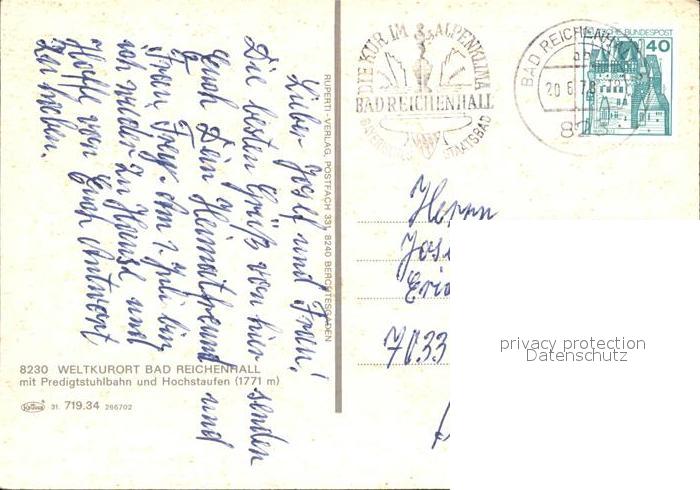 Lieber Josef und Frau!
Die besten Grüß von hier senden
Euch Dein Heimatfreund und
Frau Frey. Am 7. Juli bin
ich wieder zu Hause und
Hoffe von Euch Antwort
zu
RUPERTI-VERLAG, POSTFACH 33, 8240 BERCHTESGADEN
8230 WELTKURORT BAD REICHENHALL
mit Predigtstuhlbahn und Hochstaufen (1771 m)
Krüger 31. 719.34 266702
DIE KUR IM ALPENKLIMA
BAD REICHENHALL
BAYERISCHES STAATSBAD
BAD REICHENHALL
20.6.78
82
DEUTSCHE BUNDESPOST
40
Herrn
Jose
Eri
7033
privacy protection
Datenschutz